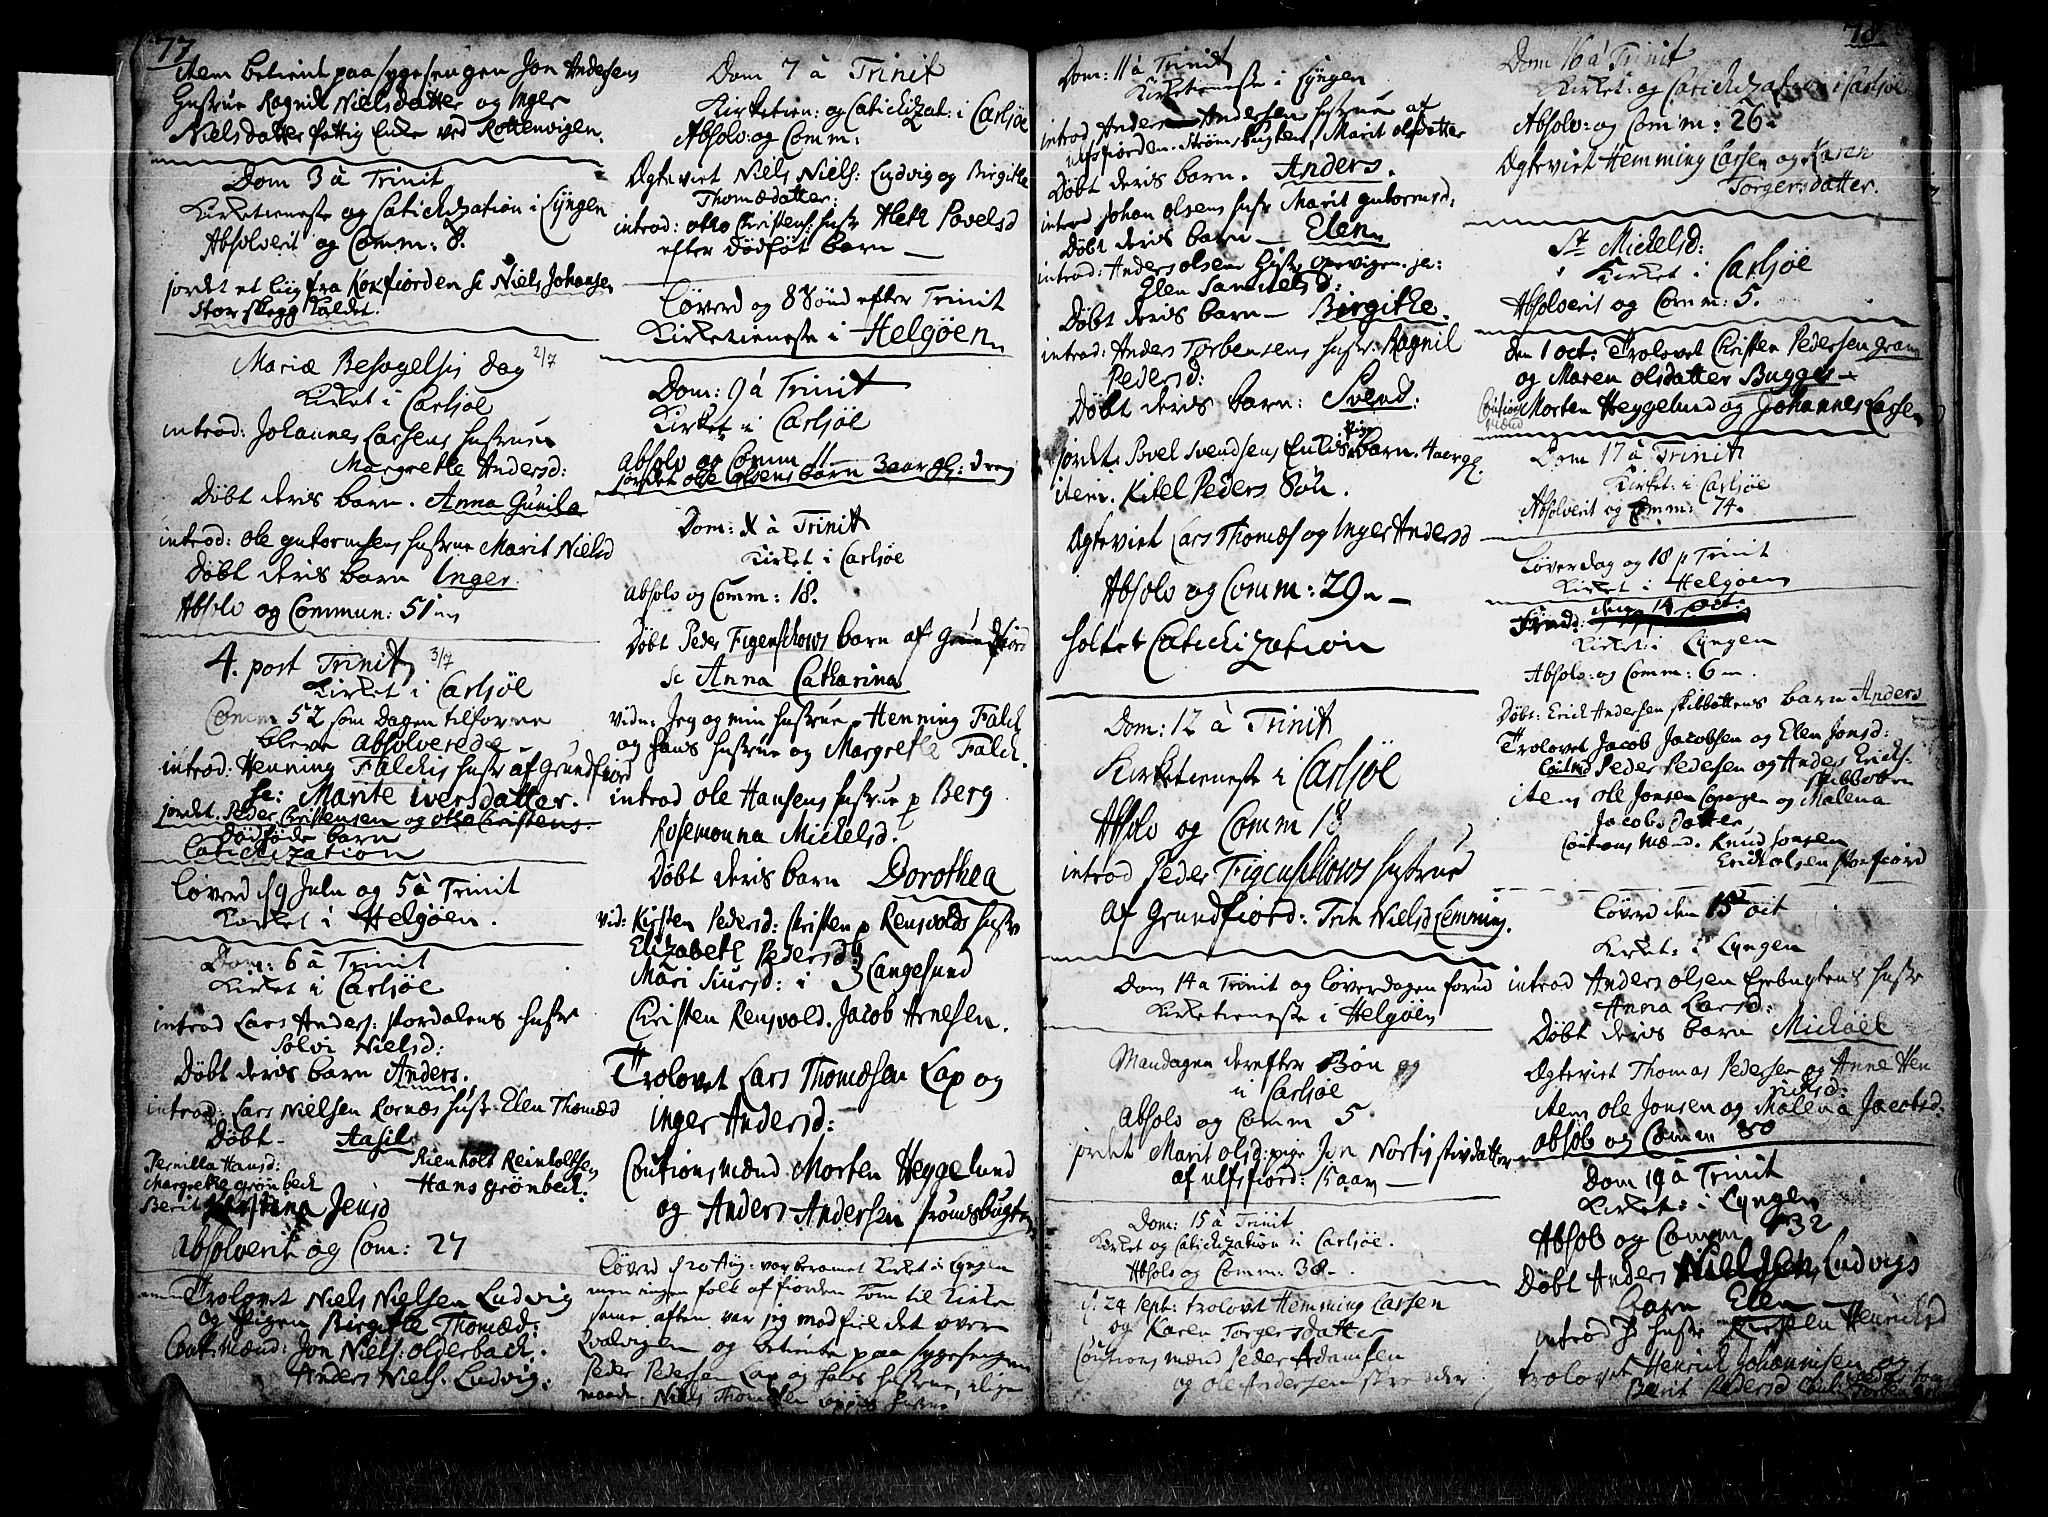 77
item betient paa sygesengen Jon Andersens
Hustrue Ragnil Nielsdatter og Inger
Nielsdatter fattig Enke ved Rottenvigen.
Dom 3 à Trinit
Kirketieneste og Catichization i Lÿngen
Absolverit og Comm: 8.
jordet et liig fra Koxfiorden sc Niels Johansen
Storskegg kaldet.
Mariæ Besøgelsis dag 2/7
Kirket i Carlsøe
introd: Johannes Larsens hustrue
Margrethe Andersd:
Døbt deris barn. Anna Gunila
introd: ole gutormsens hustrue Marit Nielsd
Døbt deris barn Inger.
Absolv og Commun: 51
4. post Trinit 3/7
Kirket i Carlsøe
Comm 52 som dagen tilforne
bleve absolverede
introd: Henning Falchis hustr af Grundfiord
sc: Marite iversdatter.
jordet. Peder Christensen og otto Christens:
dødfødde barn
Catichization
Løverd d 9 Julii og 5 à Trinit
Kirket i Helgøen.
Dom: 6 à Trinit
Kirket i Carlsøe
introd Lars Anders: stordalens hustr
Solvi Nielsd:
Døbt deris barn Anders.
introd: Lars Nielsen Kornæs hustr Elen Thomæd
Døbt Aasil
Pernilla Hansd: Rienholt Reinholtsen
Margrethe grønbech Hans grønbech:
Berit Jensd
absolverit og Com: 27
Trolovet Niels Nielsen Ludvig
og pigen Birgithe Thomæd:
Caut: mænd: Jon Niels: olderbach:
Anders Niels: Ludvig:
Dom 7 à Trinit
Kirketien: og Catichizat: i Carlsøe
Absolv: og Comm:
Ægteviet Niels Niels: Ludvig og Birgithe
Thomædatter:
introd: otto Christens: hustr Aleth Povelsd
efter dødføt barn
Løverd og 8 Sönd efter Trinit
Kirketieneste i Helgøen
Dom: 9 à Trinit
Kirket i Carlsøe
Absolv og Comm 11
jordet ole olsens barn 3 aar gl: dreng
Dom: X à Trinit
Kirket i Carlsøe
absolv og Comm: 18.
Døbt Peder Figenschows barn af Grundfiord
sc Anna Catharina
vidn: Jeg og min hustrue, Henning Falch
og hans hustrue og Margrethe Falch.
introd ole Hansens hustrue p Berg
Rosemonna Michelsd.
Døbt deris barn Dorothea
vid: Kirsten Pedersd: christen p Rensvolds hustr
Elizabeth Pedersd:
Mari Siursd: i Langesund
Christen Rensvold. Jacob Arnesen.
Trolovet Lars Thomæsen Lap og
inger Andersd:
Coutionsmænd Morten Heggelund
og Anders Andersen strømsbugten
Løverd d 20 Aug: var beramet Kirket i Lyngen
men ingen folk af fiorden kom til kirke
samme aften var jeg med fiel det over
Kvalvigen og betiente paa sygesengen
Peder Pedersen Lap og hans hustrue, lige
maade Niels Thomesen hustrue
78
Dom: 11 à Trinit
Kirketieneste i Lÿngen
introd Anders Andersen hustrue af
ulfsfiorden. Strømsbugten, Marit olsdatter
Døbt deris barn. Anders.
introd johan olsens hustr Marit gutormsd.
Døbt deris barn Elen
introd: Anders olsens Hustr
Elen Samuelsd:
Døbt deris barn Birgithe.
introd: Anders Torbensens hustr: Ragnil
Pedersd:
Døbt deris barn: Svend:
jordet. Povel svendsens Enkes pige barn. 4 aar gl.
item. Kitel Peders Søn.
Ægteviet Lars Thomæs og Inger Andersd
Absolv og Comm: 29
holtet Catichization
Dom: 12 à Trinit
Kirketieneste i Carlsøe
Absolv og Comm 18
introd Peder Figenschows hustrue
af Grundfiord: Trin Nielsd Lemming.
Dom 14 a Trinit og Løverdagen forud
Kirketieneste i Helgøen
Mandagen derefter Bøn og
i Carlsøe
Absolv og Comm 5
jordet Marit olsd: pige Jon Nortis stivdatter
af ulfsfiord: 15 aar
Dom: 15 à Trinit
Kirket og Catichization i Carlsøe.
Absolv og Comm: 38.
d. 24 Sept: trolovet Hemming Larsen
og Karen Torgersdatter
Coutions mænd Peder Adamsen
og ole Andersen
Dom 16 à Trinit
Kirket: og Catichization i Carlsøe
Absolv: og Comm: 26
Ægteviet Hemming Larsen og Karen
Torgersdatter.
St Michelsd:
Kirket i Carlsøe
Absolverit og Comm: 5.
den 1 oct: Trolovet Christen Pedersen gram
og Maren olsdatter Bugge
Coutions mænd Morten Heggelund og Johannes Larsen
Dom 17 à Trinit
Kirket: i Carlsøe
Absolverit og Comm: 74.
Løverdag og 18 p Trinit
Kirket i Helgøen
den 14 oct:
Kirket: i Lyngen
Absolv: og Comm: 6
Døbt: Erich Andersen skibbottens barn Anders
Trolovet Jacob Jacobsen og Elen Jonsd:
Coutmd Peder Pedersen og Anders Erichs.
skibbotten
item ole Jonsen og Malena
Jacobsdatter
Coutions mænd. Knud Jonsen
Erich olsen storfiord
Løverd den 15 oct
Kirket: i Lyngen
introd Anders olsen hustr
Anna Larsd:
Døbt deris barn Michael
Ægteviet Thomas Pedersen og Anne Hen
richsd:
item ole Jonsen og Malena Jacobsd:
absolv og Comm 80
Dom 19 à Trinit
Kirket: i Lyngen
Absolv og Comm 32
Døbt Anders Nielssen Ludvigs
barn Elen
introd hustr Kirsten Henrichsd
trolovet Henrich Johannisen og
Berit Pedersd